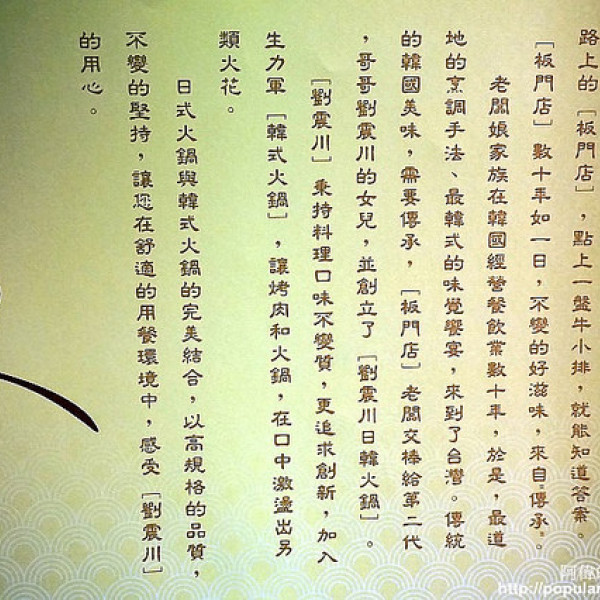 路上的［板門店］，點上一盤牛小排，就能知道答案。
［板門店］數十年如一日，不變的好滋味，來自“傳承”。
老闆娘家族在韓國經營餐飲業數十年，於是，最道
地的烹調手法、最韓式的味覺饗宴，來到了台灣。傳統
的韓國美味，需要傳承，［板門店］老闆交棒給第二代
，哥哥劉震川的女兒，並創立了［劉震川日韓火鍋］。
［劉震川］秉持料理口味不變質，更追求創新，加入
生力軍［韓式火鍋］，讓烤肉和火鍋，在口中激盪出另
類火花。
日式火鍋與韓式火鍋的完美結合，以高規格的品質，
不變的堅持，讓您在舒適的用餐環境中，感受［劉震川］
的用心。
阿偉
http://popular